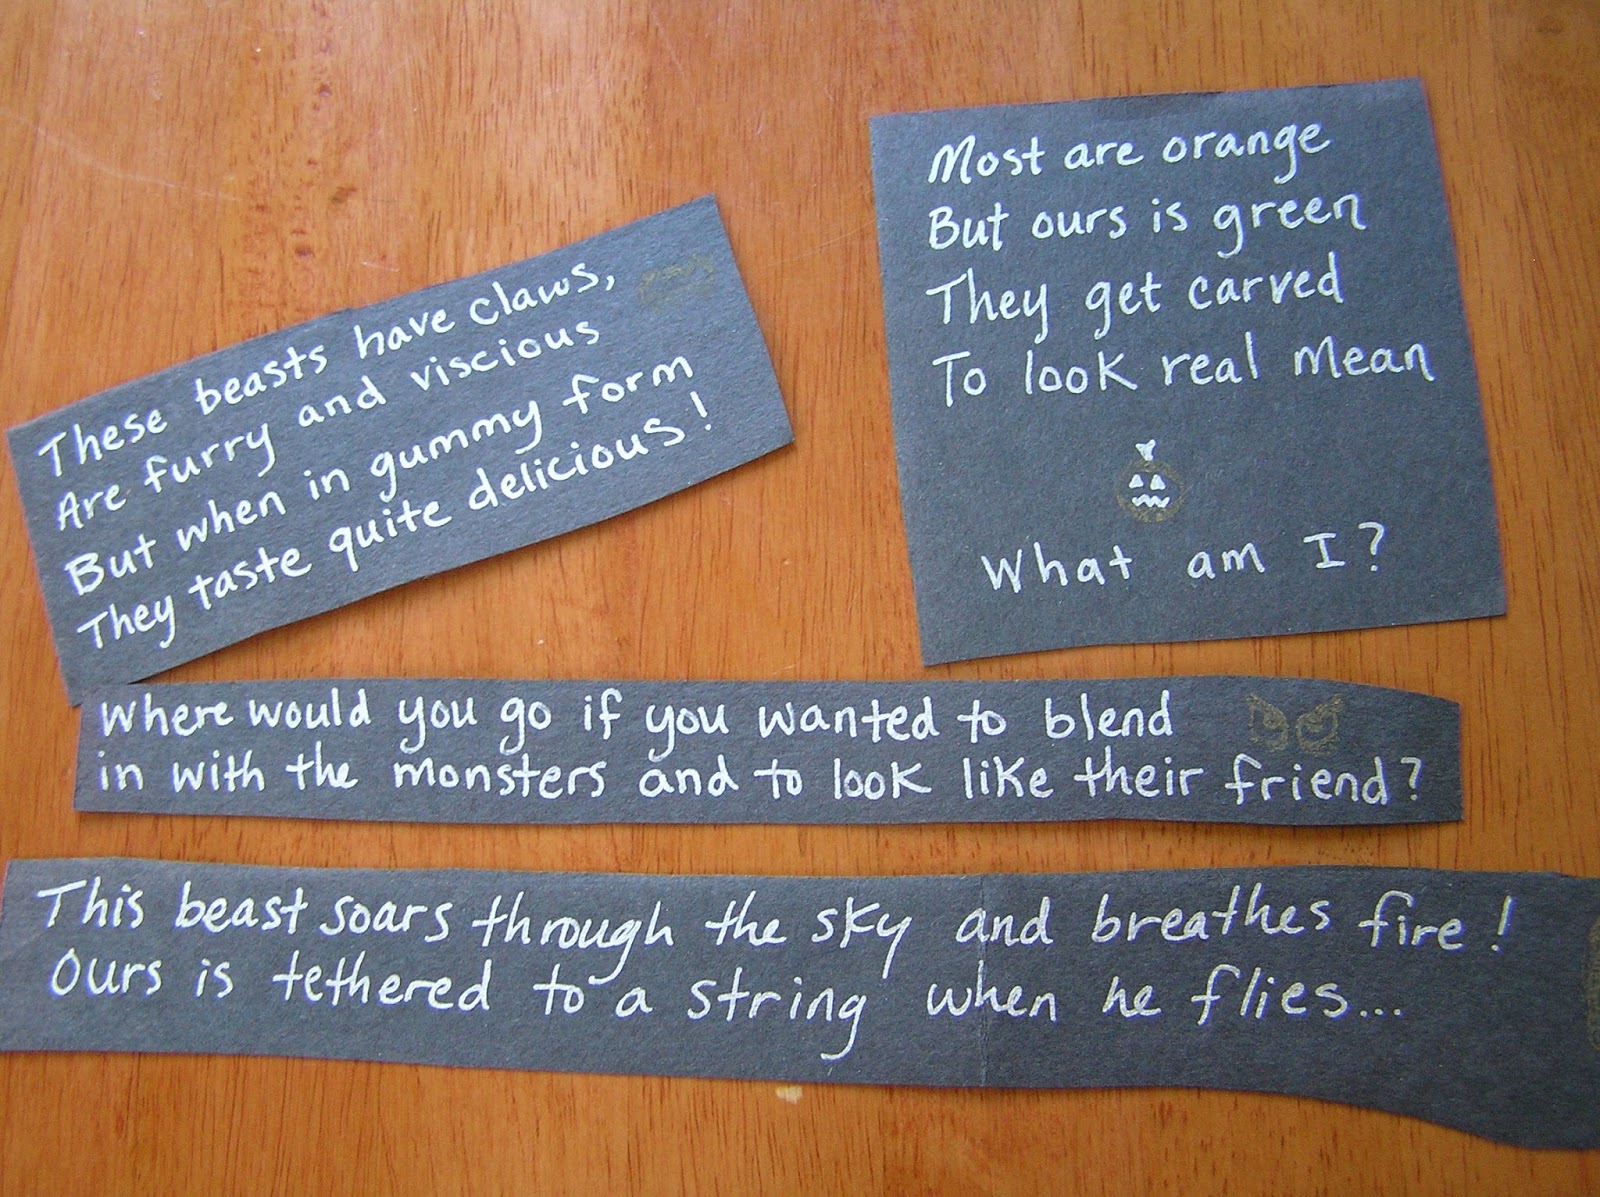 These beasts have claws,
Are furry and viscious
But when in gummy form
They taste quite delicious!
Most are orange
But ours is green
They get carved
To look real mean
What am I?
Where would you go if you wanted to blend
in with the monsters and to look like their friend?
This beast soars through the sky and breathes fire!
Ours is tethered to a string when he flies...